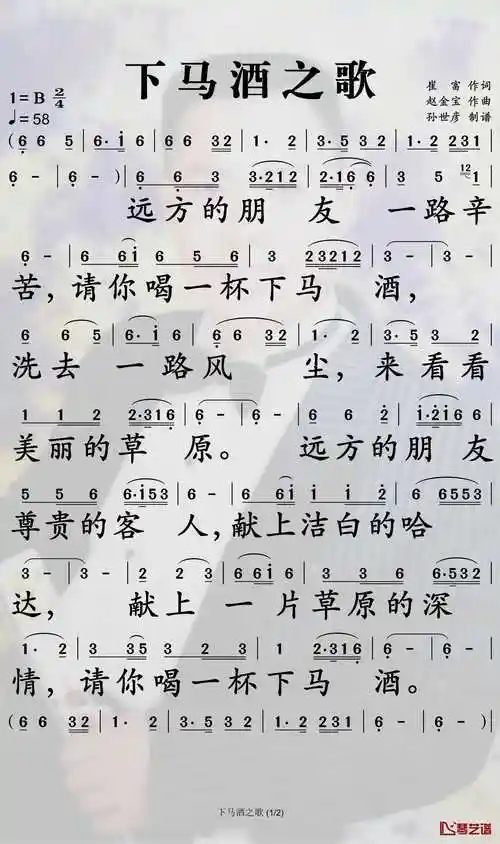 下马酒之歌
1=B 2/4
♩=58
崔富 作词
赵金宝 作曲
孙世彦 制谱
(6 6 5 | 6· i 6 | 6 6 32 | 1· 2 | 3·5 32 | 1·2 231 |
6 - | 6 - ) | 6 6 3 | 3·212 | 2·16 6 | 3 5 12 1 |
远方的朋 友 一路辛
6 - | 6 6 6i | 6 5 6 | 3 23212 | 3 - | 3 - |
苦,请你喝一杯下马 酒,
6 6 5 | 6· i | 6 6 32 | 1· 2 | 3·5 3532 |
洗去 一路风 尘,来看看
1 1 2 | 2·316 | 6 - | 6 - | 6 6 2 | i·2i6 |
美丽的草 原。 远方的朋 友
5 5 6 | 6·i53 | 6 - | 6 6i | i i 2 | 6 6553 |
尊贵的客 人,献上洁白的哈
3 - | 3 - | 2 2 3 | 6 6i 6 | 3 3 6 | 6·532 |
达, 献上 一 片草原的深
1· 2 | 3 35 | 3 2 2 | 1 2·316 | 6 - | 6 - |
情,请你喝一杯下马 酒。
(6 6 32 | 1· 2 | 3·5 32 | 1·2 231 | 6 - | 6 - )
下马酒之歌 (1/2)
琴艺谱